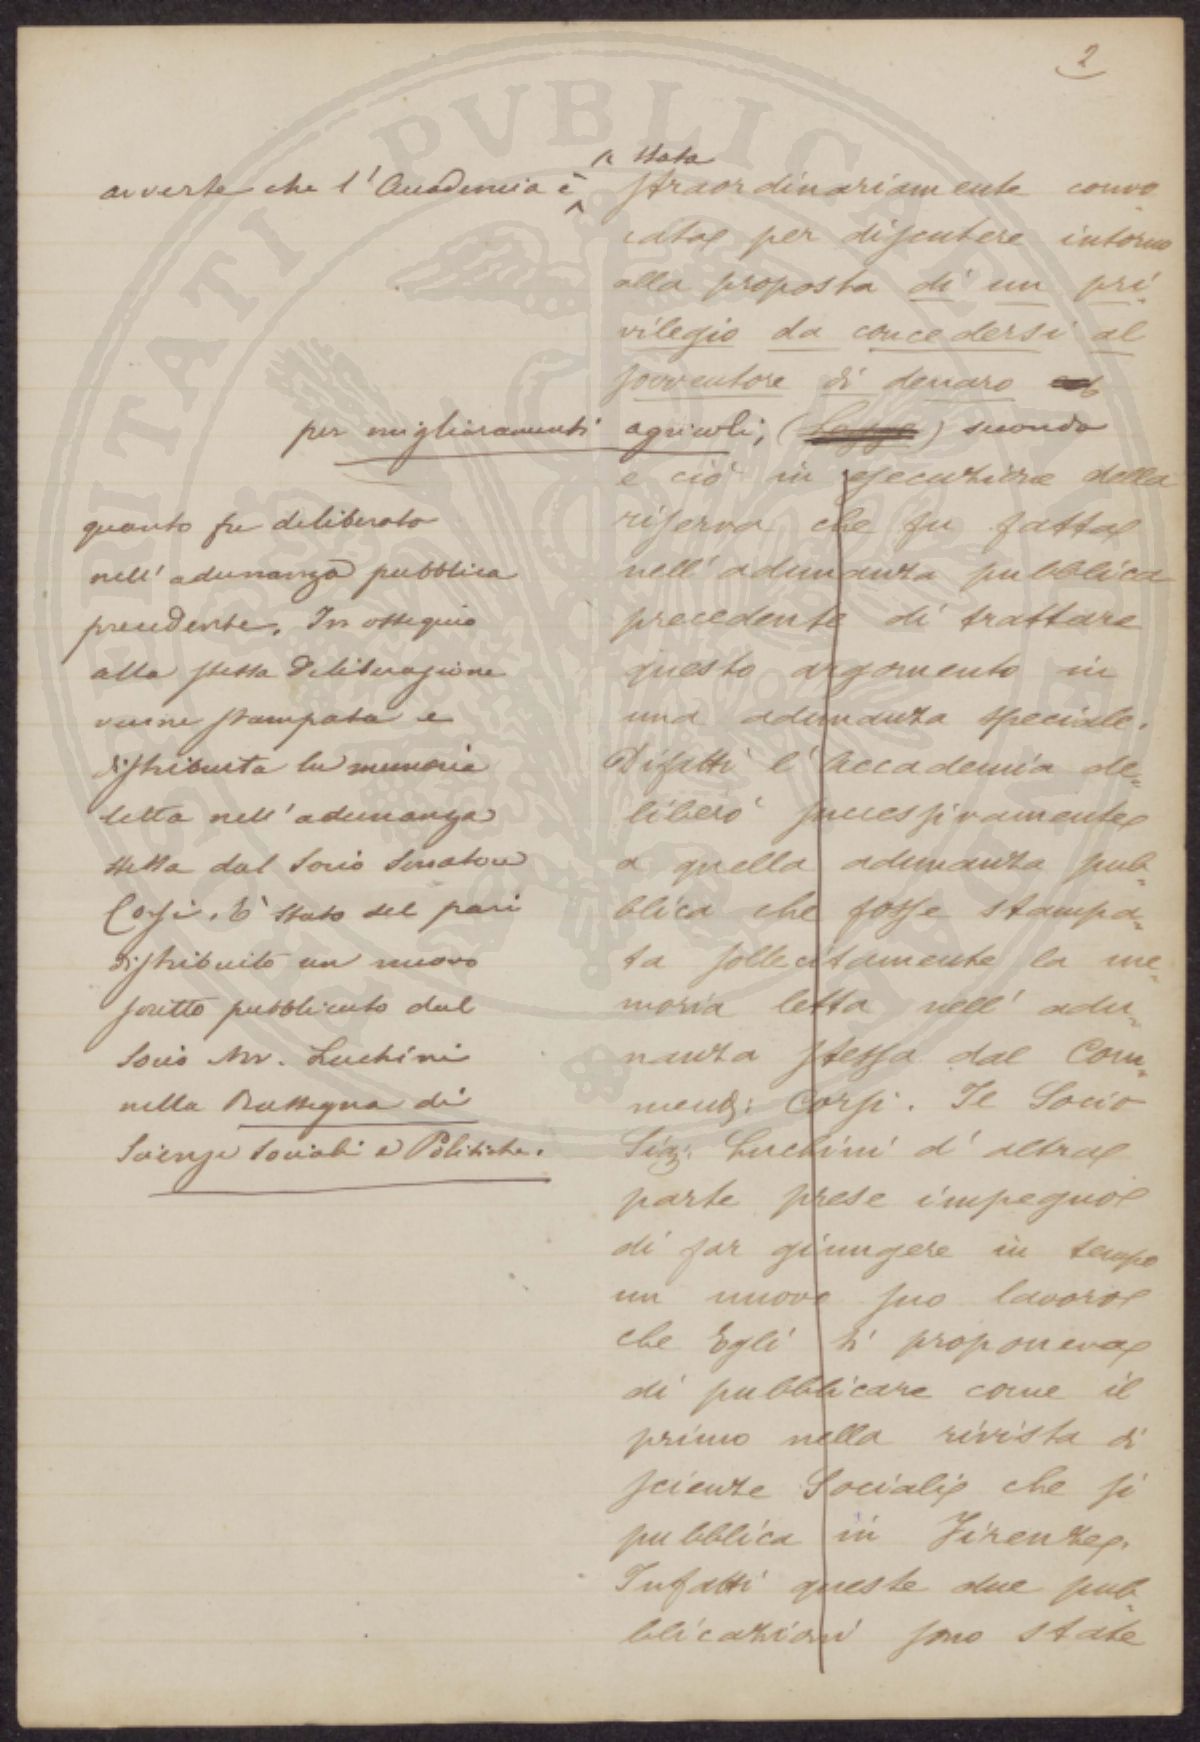 2
è stata
avverte che l'Accademia è straordinariamente convo-
cata per discutere intorno
alla proposta di un pri-
vilegio da concedersi al
sovventore di denaro
per miglioramenti agricoli, (Legge) secondo
e ciò in esecuzione della
riserva che fu fatta
nell'adunanza pubblica
precedente di trattare
questo argomento in
una adunanza speciale.
Difatti l'Accademia de-
liberò successivamente
a quella adunanza pub-
blica che fosse stampa-
ta sollecitamente la me-
moria letta nell'adu-
nanza stessa dal Com-
mend: Corsi. Il Socio
Sig: Luchini d'altra
parte prese impegno
di far giungere in tempo
un nuovo suo lavoro
che Egli si proponeva
di pubblicare come il
primo nella rivista di
scienze Sociali che si
pubblica in Firenze.
Infatti queste due pub-
blicazioni sono state
quanto fu deliberato
nell'adunanza pubblica
precedente. In ossequio
alla stessa deliberazione
venne stampata e
distribuita la memoria
letta nell'adunanza
stessa dal Socio Senatore
Corsi. È stato del pari
distribuito un nuovo
scritto pubblicato dal
Socio Avv. Luchini
nella Rassegna di
Scienze Sociali e Politiche.
PVBLICAE